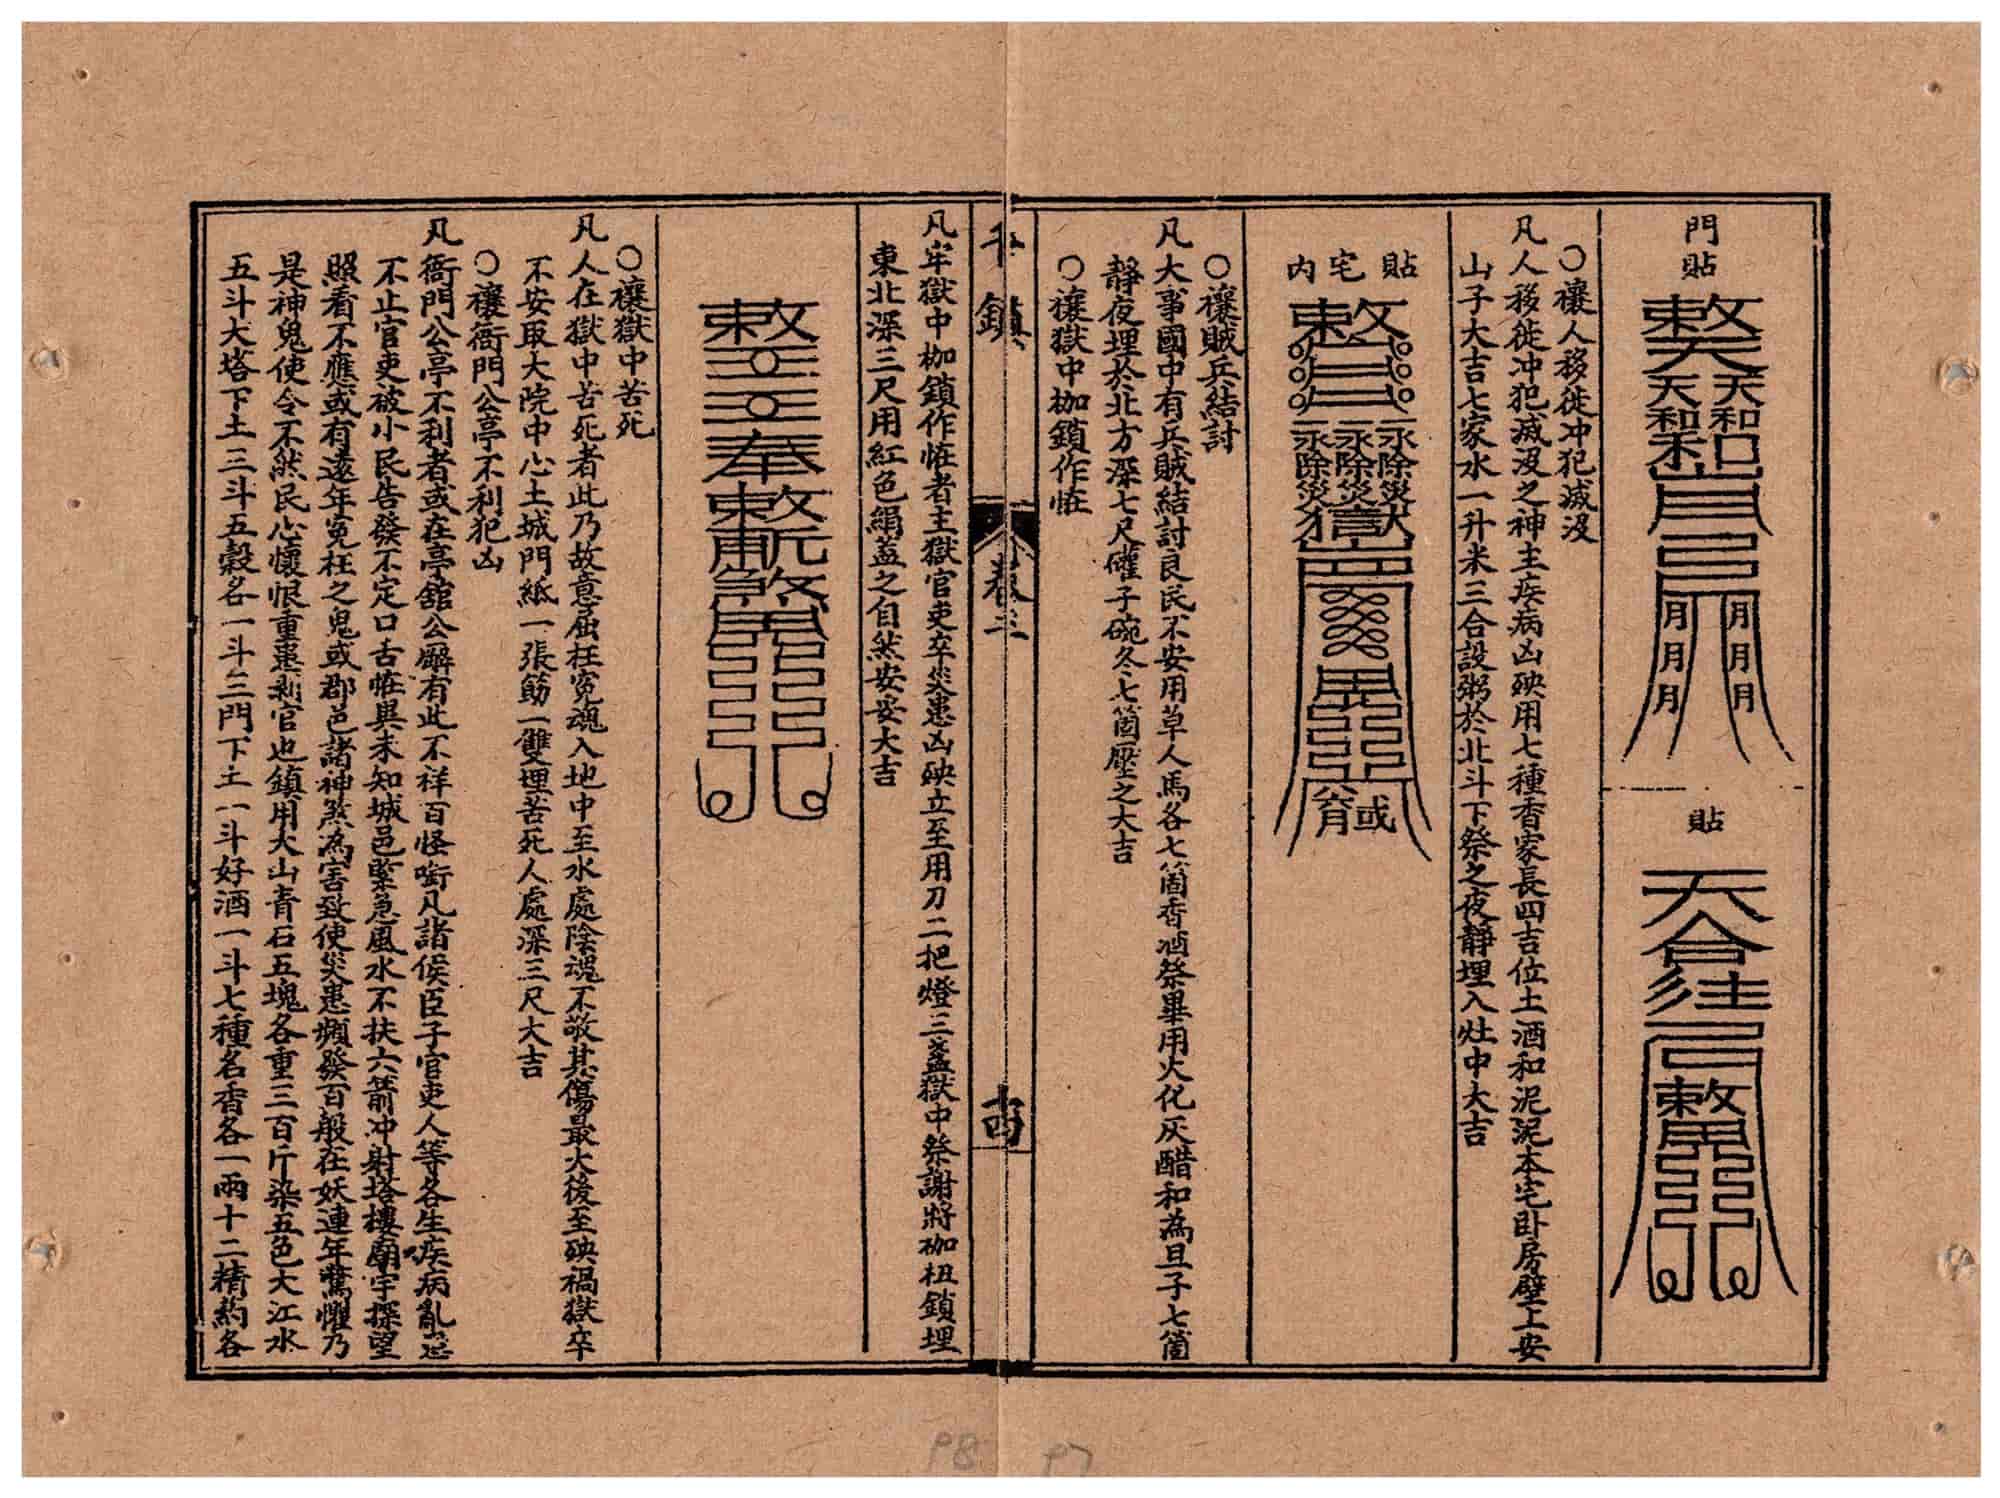 門貼
貼
○禳人移徙冲犯滅沒
凡人移徙冲犯滅沒之神主疾病凶殃用七種香家長四吉位土酒和泥泥本宅卧房壁上安
山子大吉七家水一升米三合設粥於北斗下祭之夜靜埋入灶中大吉
貼宅內
○禳賊兵結討
凡大事國中有兵賊結討良民不安用草人馬各七箇香酒祭畢用火化灰醋和為旦子七箇
靜夜埋於北方深七尺礶子碗冬七箇壓之大吉
○禳獄中枷鎖作恠
鎮
卷三
十四
凡牢獄中枷鎖作恠者主獄官吏卒災患凶殃立至用刀二把燈三盞獄中祭謝將枷杻鎖埋
東北深三尺用紅色絹蓋之自然安妥大吉
○禳獄中苦死
凡人在獄中苦死者此乃故意屈枉寃魂入地中至水處陰魂不敬其傷最大後至殃禍獄卒
不安取大院中心土城門紙一張筯一雙埋苦死人處深三尺大吉
○禳衙門公亭不利犯凶
凡衙門公亭不利者或在亭舘公廨有此不祥百怪啣凡諸侯臣子官吏人等各生疾病亂忌
不止官吏被小民告發不定口舌恠異未知城邑緊急風水不扶六箭冲射塔樓廟宇探望
照看不應或有遠年寃枉之鬼或郡邑諸神煞為害致使災患頻發百般在妖連年驚懼乃
是神鬼使令不然民心懷恨重患剥官也鎮用大山青石五塊各重三百斤染五色大江水
五斗大塔下土三斗五穀各一斗三門下土一斗好酒一斗七種名香各一兩十二精葯各
P8
P7